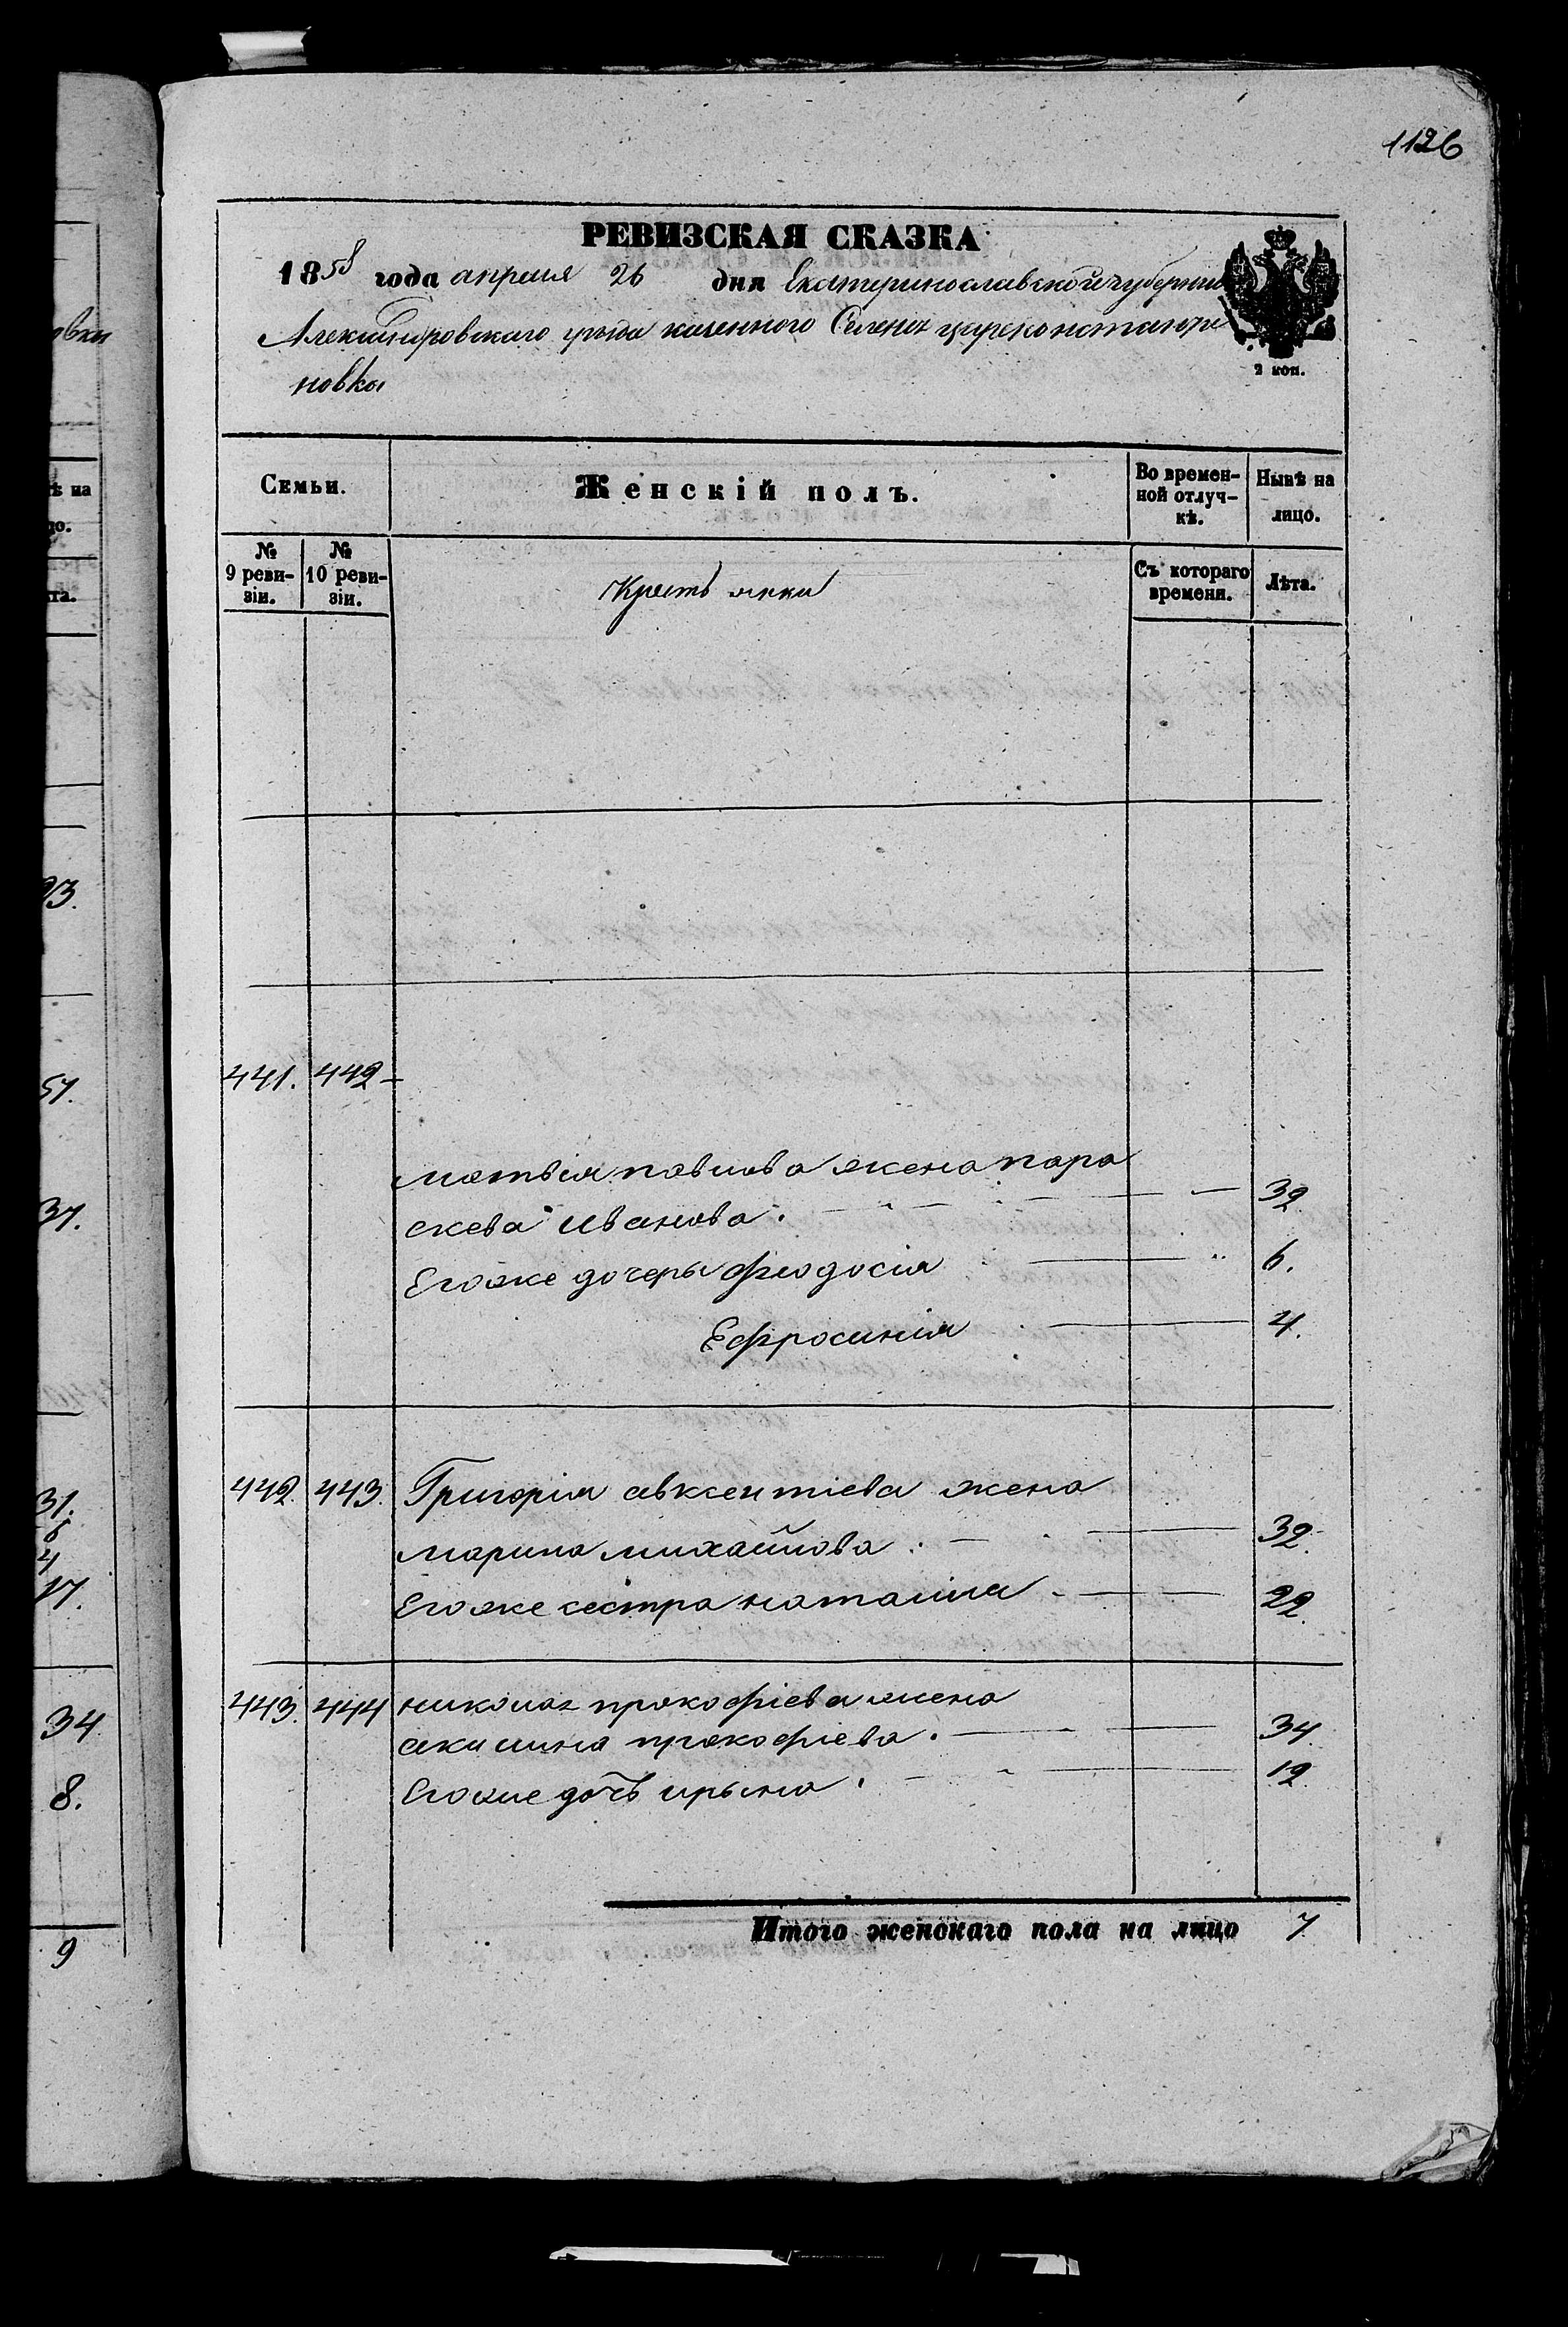 1126
РЕВИЗСКАЯ СКАЗКА
1858 года апреля 26 дня Екатеринославской губернии
Александровскаго уезда казенного Селения цареконстанти
новки
2 коп.
Семьи. Женскій полъ. Во времен-
ной отлуч-
кѣ. Нынѣ на
лицо.
№
9 реви-
зіи. №
10 реви-
зіи. Кресть янки Съ котораго
времени. Лѣта.
441. 442
матвія павлова жена пара
скева иванова. 32
Егоже дочеры феодосія 6.
Ефросинія 4.
442. 443. Григорія авксентіева жена
марина михайлова. 32.
Егоже сестра наталия 22.
443. 444 николая прокофіева жена
акилина прокофіева. 34.
Егоже дочь ирына. 12.
Итого женскаго пола на лицо 7
овки
ѣ на
цо.
та.
93.
57.
37.
31.
6
4
17.
34
8.
9